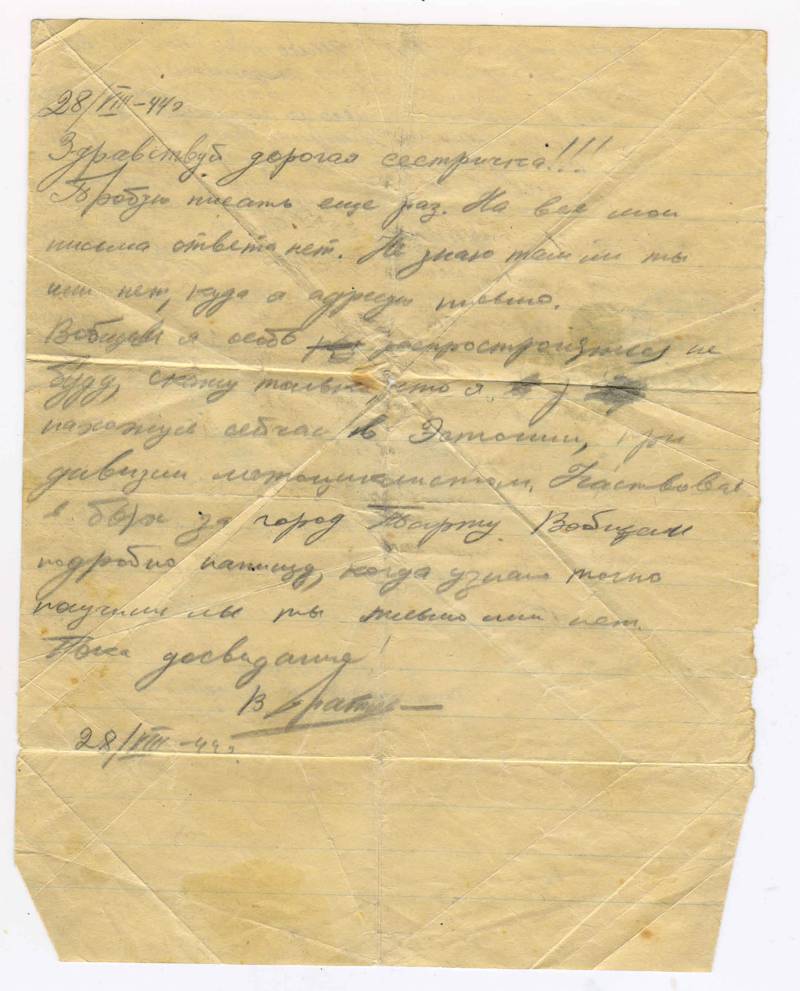 28/VIII-44г
Здравствуй дорогая сестричка!!!
Пробую писать еще раз. На все мои
письма ответа нет. Не знаю там ли ты
или нет, куда я адресую письмо.
Вобщем я особо распространятся не
буду, скажу только, что я
нахожусь сейчас в Эстонии, при
дивизии мотоциклистом. Участвовал
в боях за город Тарту. Вобщем
подробно напишу, когда узнаю точно
получили ли ты письмо или нет.
Пока досвидания!
В
28/VIII-44г.